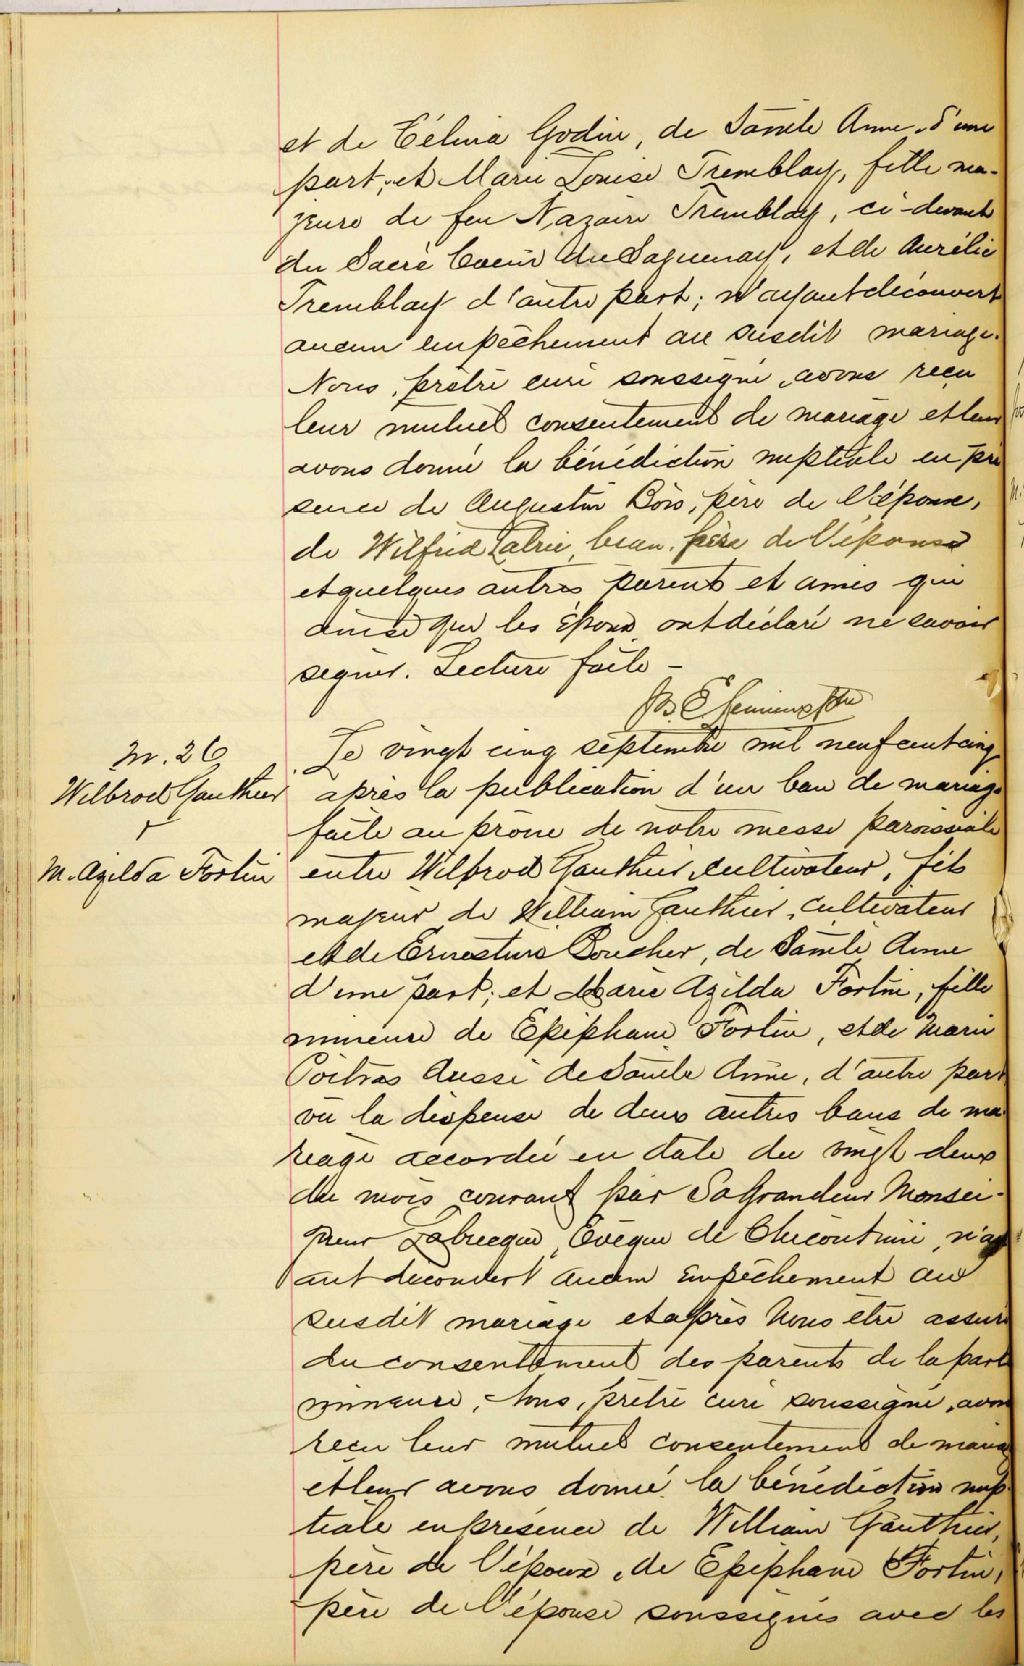 et de Célina Godin, de Sainte Anne, d'une
part, et Marie Louise Tremblay, fille ma-
jeure de feu Nazaire Tremblay, ci-devant
du Sacré Coeur du Saguenay, et de Aurélie
Tremblay d'autre part; n'ayant découvert
aucun empêchement au susdit mariage.
Nous, prêtre curé soussigné, avons reçu
leur mutuel consentement de mariage et leur
avons donné la bénédiction nuptiale en pré
sence de Augustin Bois, père de l'époux,
de Wilfrid beau père de l'épouse
et quelques autres parents et amis qui
ainsi que les époux ont déclaré ne savoir
signer. Lecture faite -
Ptre
M. 26
Wilbrod Gauthier
r
M. Azilda Fortin
Le vingt cinq septembre mil neuf cent cinq
après la publication d'un ban de mariage
faite au prône de notre messe paroissiale
entre Wilbrod Gauthier, cultivateur, fils
majeur de William Gauthier, cultivateur
et de Ernestine Boucher, de Sainte Anne
d'une part; et Marie Azilda Fortin, fille
mineure de Epiphane Fortin, et de Marie
Poitras aussi de Sainte Anne, d'autre part
vu la dispense de deux autres bans de ma
riage accordée en date du vingt deux
du mois courant par Sa Grandeur Monsei-
gneur Labrecque, Evêque de Chicoutimi, n'ay
ant découvert aucun empêchement au
susdit mariage et après Nous être assuré
du consentement des parents de la partie
mineure, Nous, prêtre curé soussigné, avons
reçu leur mutuel consentement de mariage
et leur avons donné la bénédiction nup
tiale en présence de William Gauthier,
père de l'époux, de Epiphane Fortin,
père de l'épouse soussignés avec les